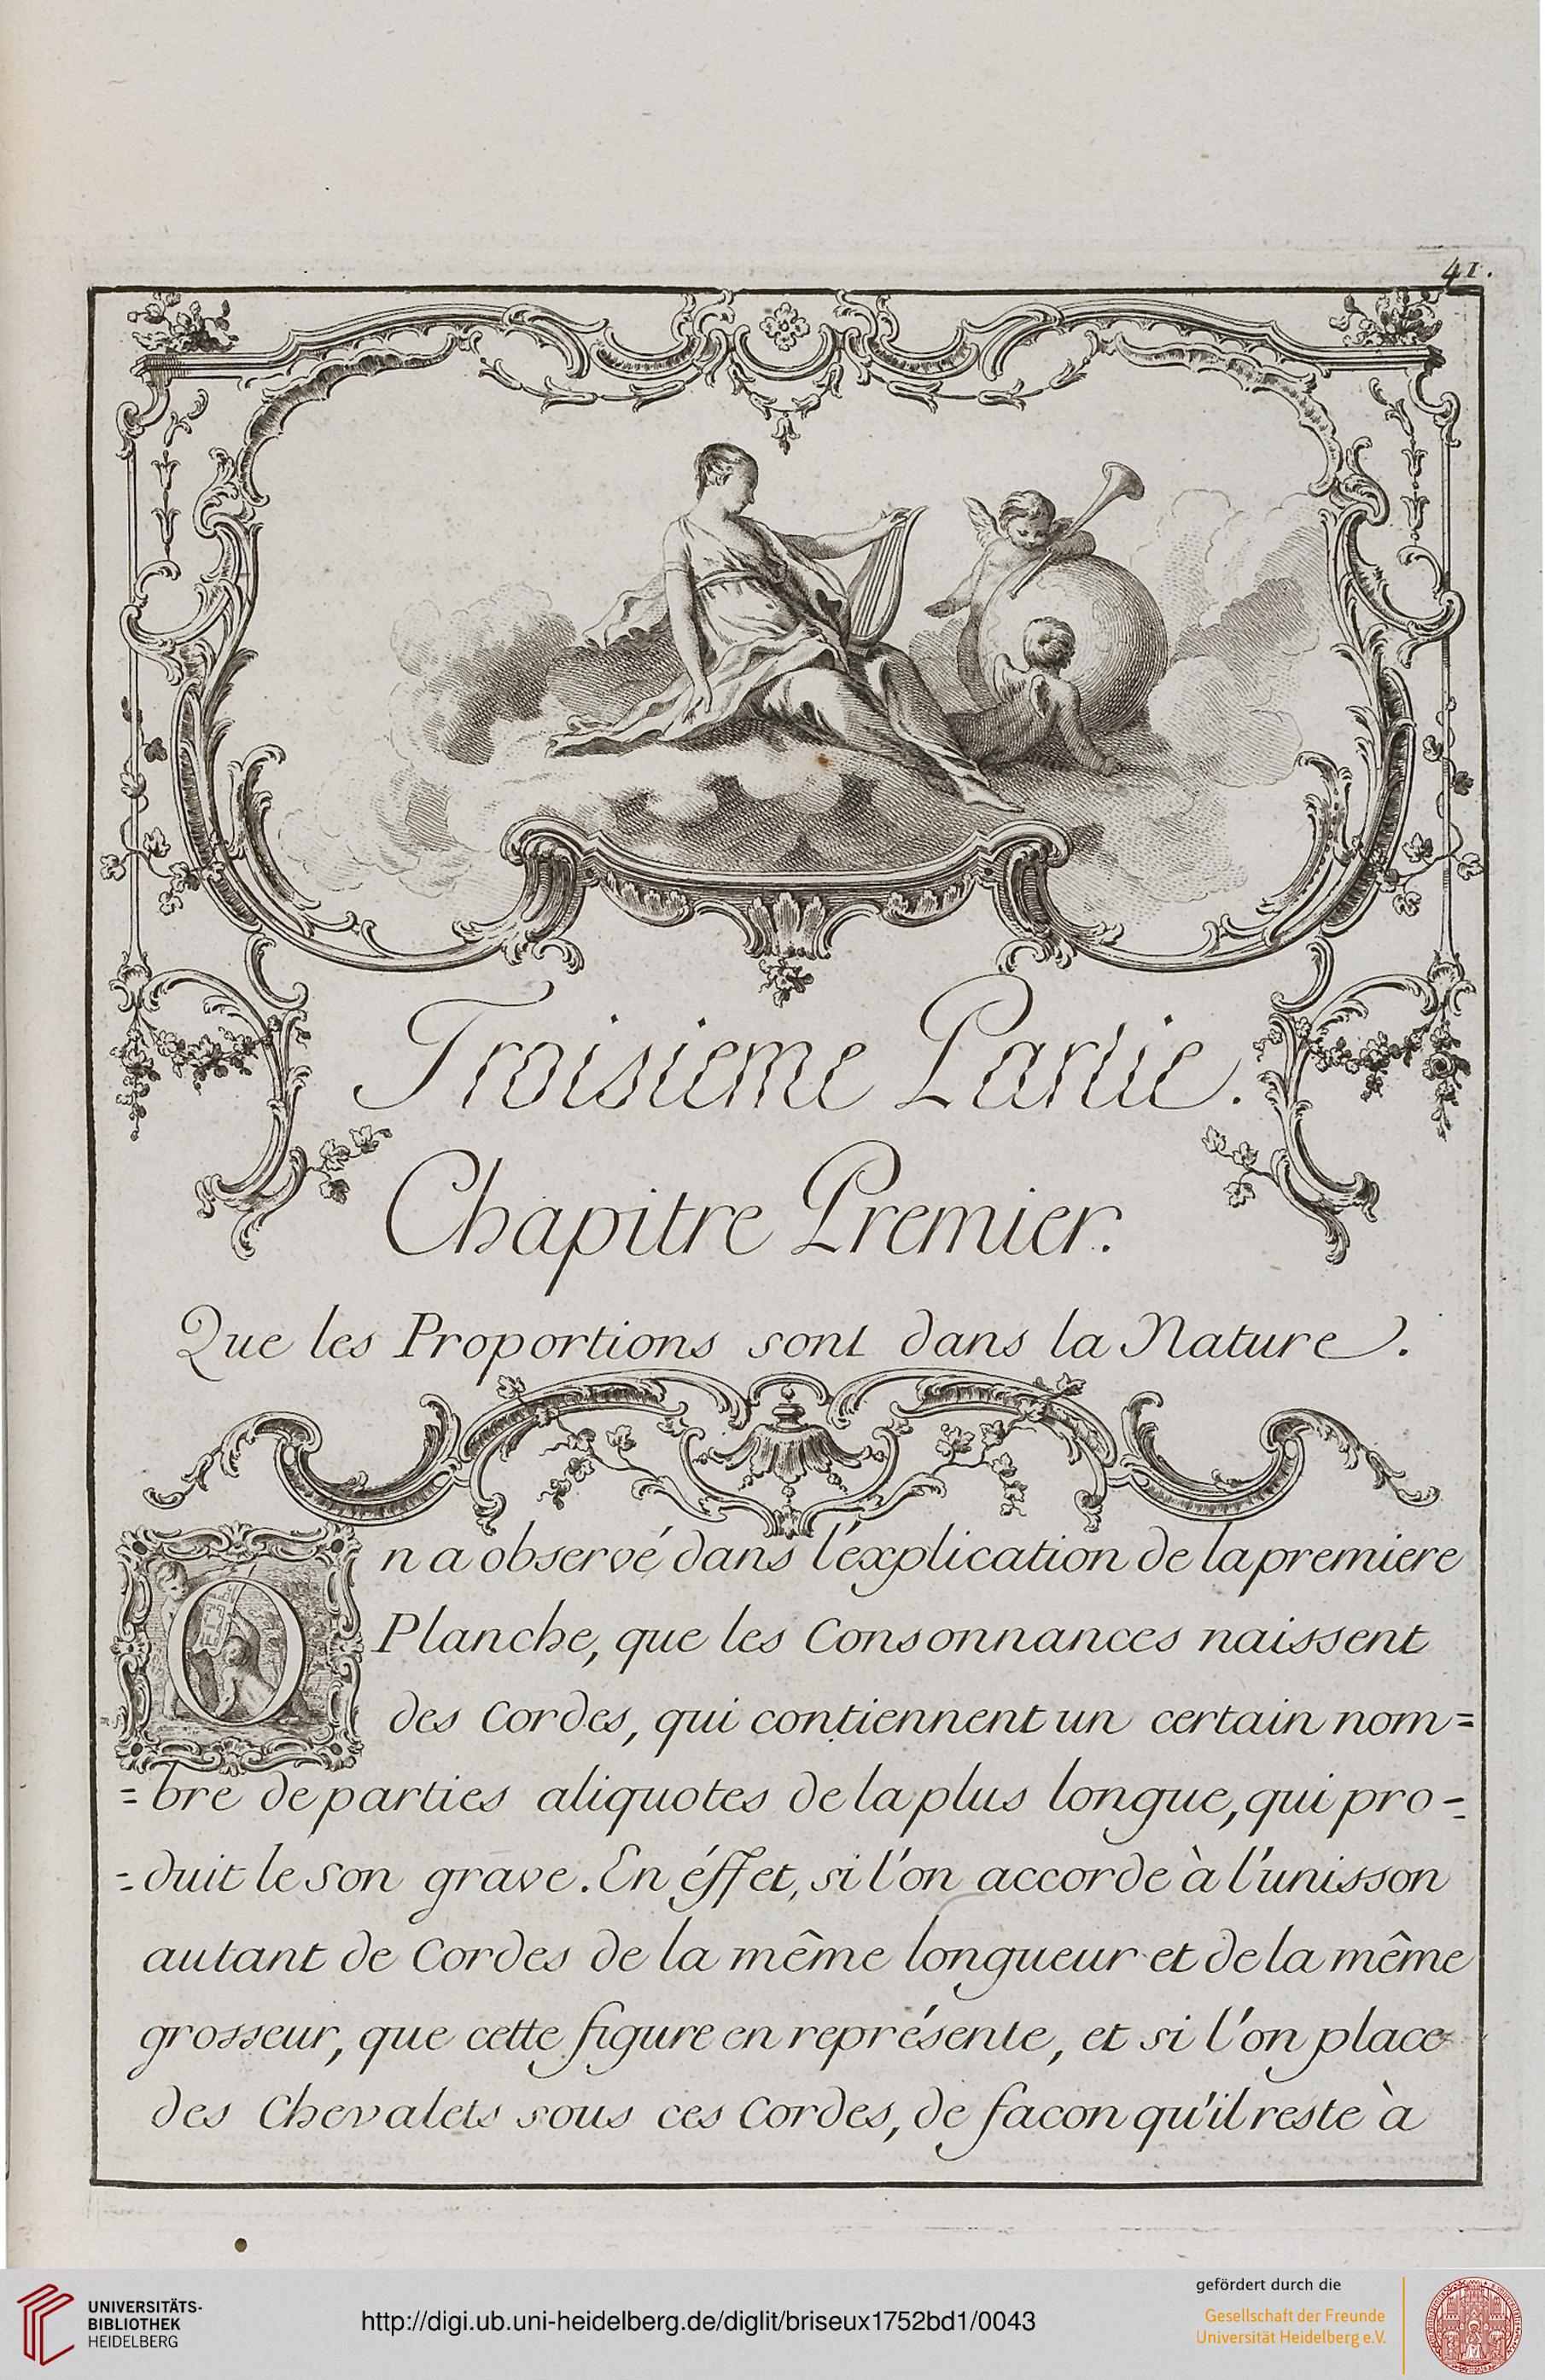 41.
Troisieme Partie.
Chapitre Premier.
Que les Proportions sont dans la Nature.
On a observé dans l'éxplication de la premiere
Planche, que les Consonnances naissent
des Cordes, qui contiennent un certain nom=
=bre de parties aliquotes de la plus longue, qui pro=
=duit le son grave. En éffet, si l'on accorde à l'unisson
autant de Cordes de la même longueur et de la même
grosseur, que cette figure en représente, et si l'on place
des Chevalets sous ces Cordes, de facon qu'il reste à
UNIVERSITÄTS-
BIBLIOTHEK
HEIDELBERG
http://digi.ub.uni-heidelberg.de/diglit/briseux1752bd1/0043
gefördert durch die
Gesellschaft der Freunde
Universität Heidelberg e.V.